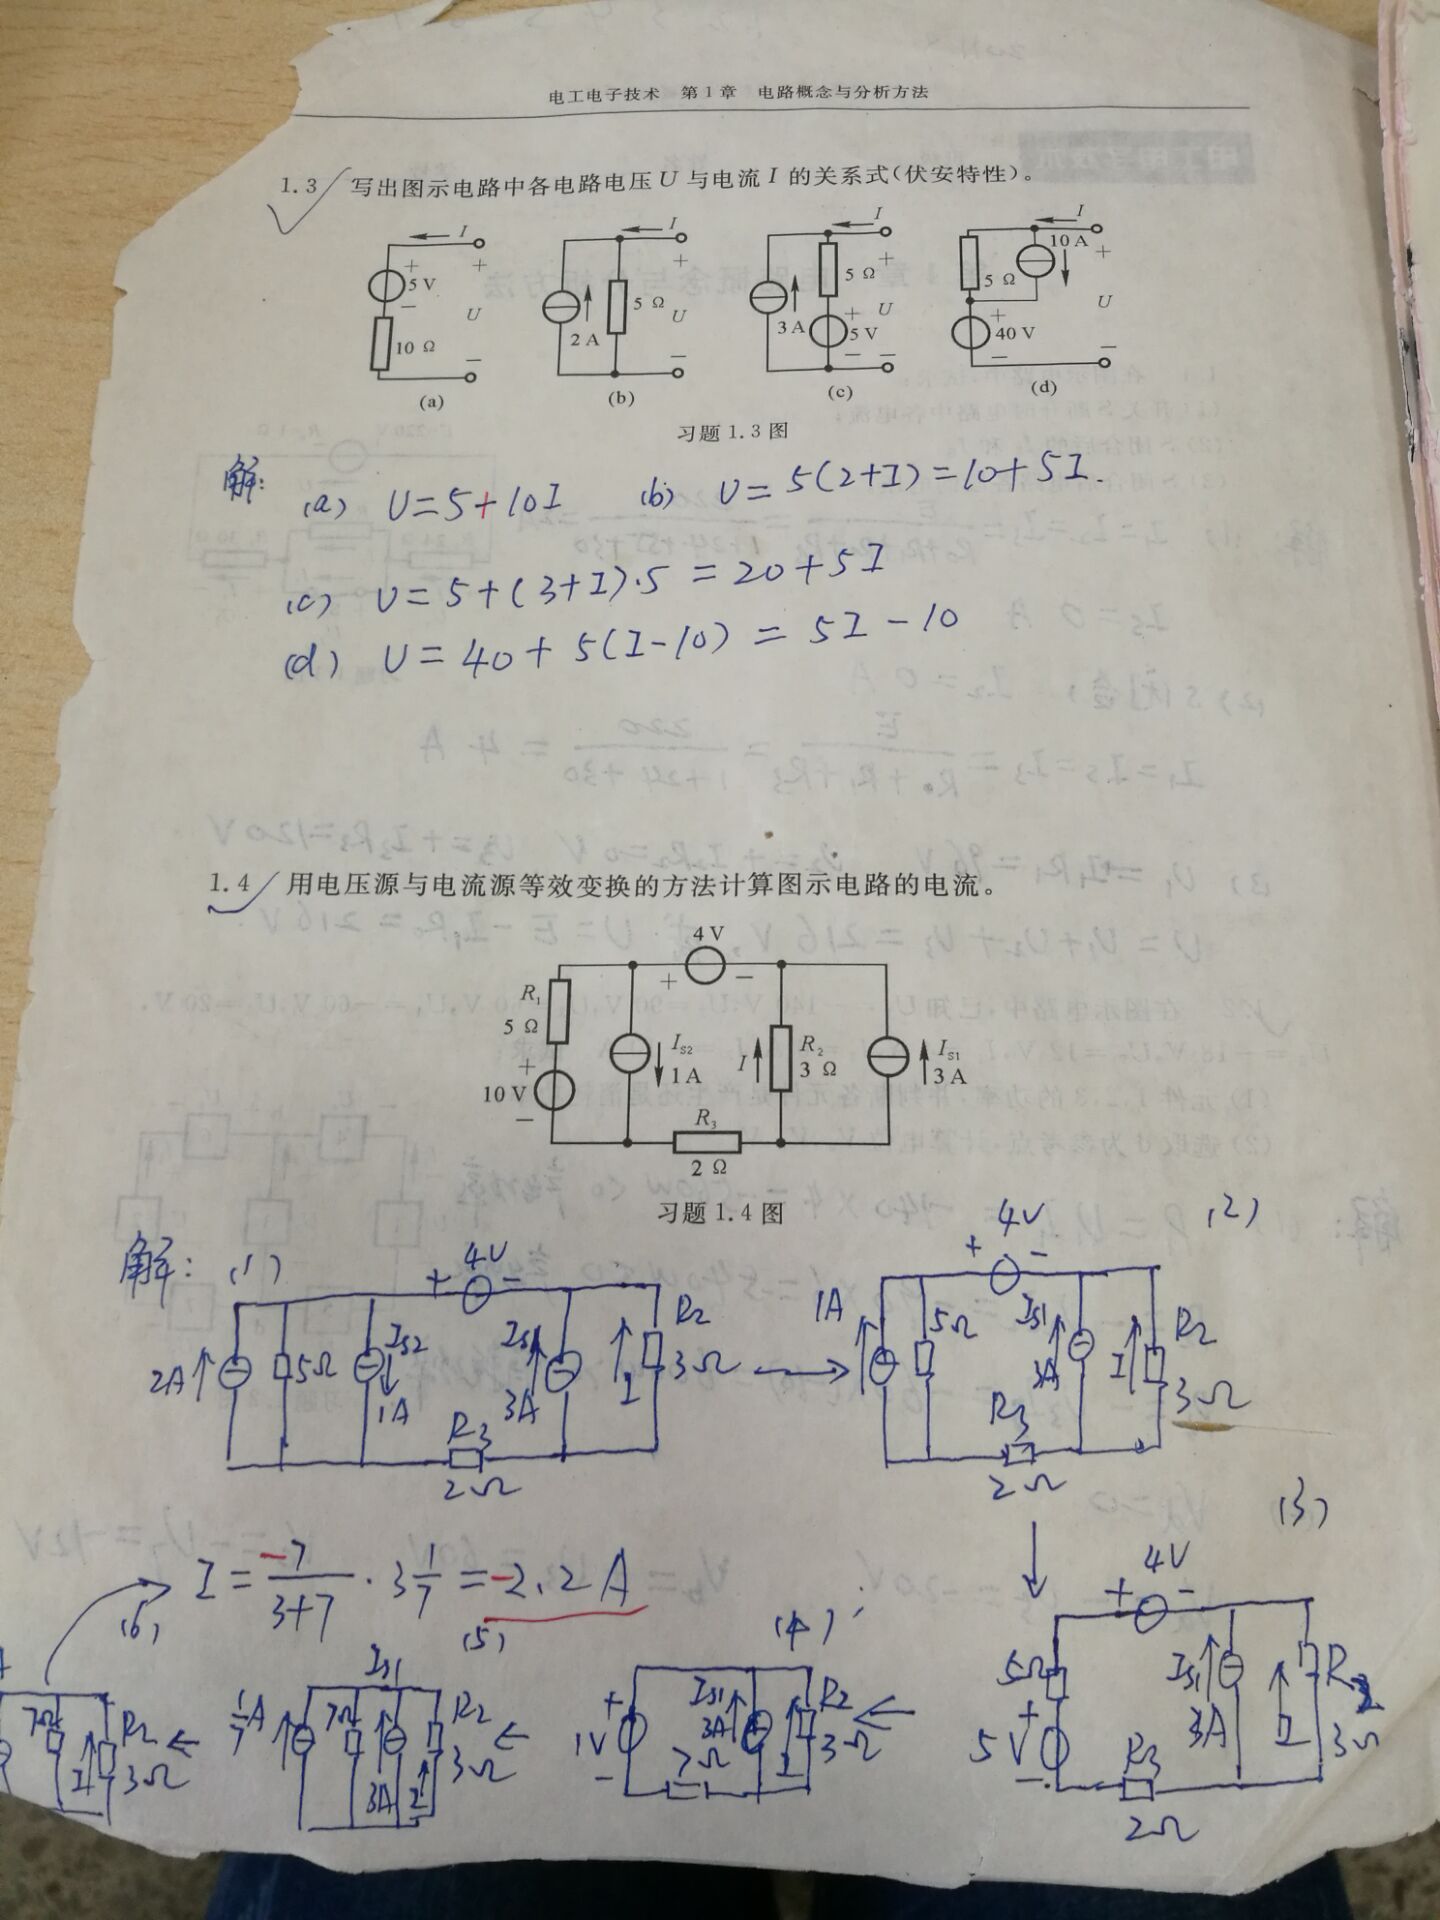 电工电子技术 第1章 电路概念与分析方法
1.3 写出图示电路中各电路电压U与电流I的关系式(伏安特性)。
I
+
5 V
−
10 Ω
+
U
−
(a)
I
2 A
5 Ω
+
U
−
(b)
I
3 A
5 Ω
+
5 V
−
+
U
−
(c)
I
10 A
5 Ω
+
40 V
−
+
U
−
(d)
习题1.3图
解:
(a) U=5+10I (b) U=5(2+I)=10+5I.
(c) U=5+(3+I)·5=20+5I
(d) U=40+5(I-10)=5I-10
1.4 用电压源与电流源等效变换的方法计算图示电路的电流。
4 V
+ −
R₁
5 Ω
+
10 V
−
I_S2
1 A
I
R₂
3 Ω
I_S1
3 A
R₃
2 Ω
习题1.4图
解: (1)
+ 4V −
2A
5Ω
Is2
1A
Is1
3A
I
R2
3Ω
R3
2Ω
(2)
4V
+ −
1A
5Ω
Is1
3A
I
R2
3Ω
R3
2Ω
(3)
4V
+ −
5Ω
+
5V
−
Is1
3A
I
R2
3Ω
R3
2Ω
(4)
+
1V
−
Is1
3A
7Ω
I
R2
3Ω
(5)
Is1
1/7A
7Ω
3A
I
R2
3Ω
(6)
7Ω
I
R2
3Ω
I = -7/(3+7) · 3 1/7 = -2.2A